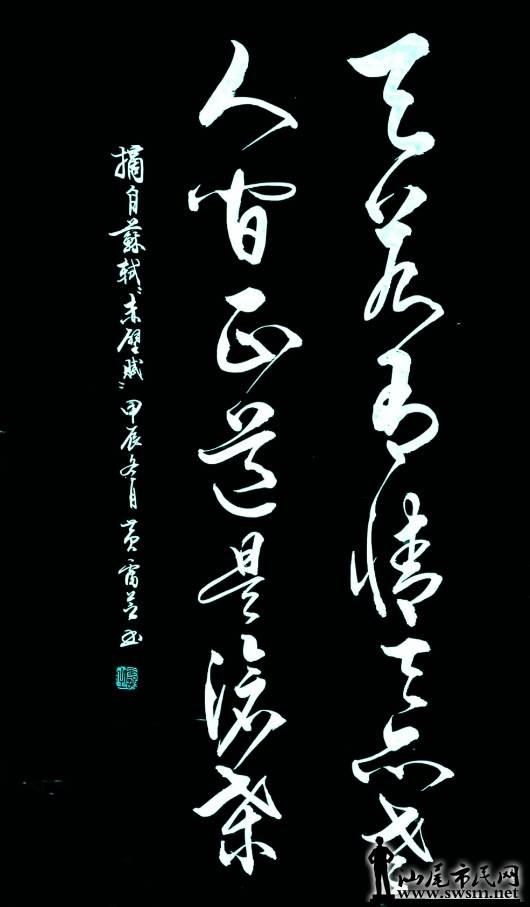 天若有情天亦老
人间正道是沧桑
摘自蘇軾“赤壁賦”甲辰冬月黄雷
汕尾市民网
www.swsm.net